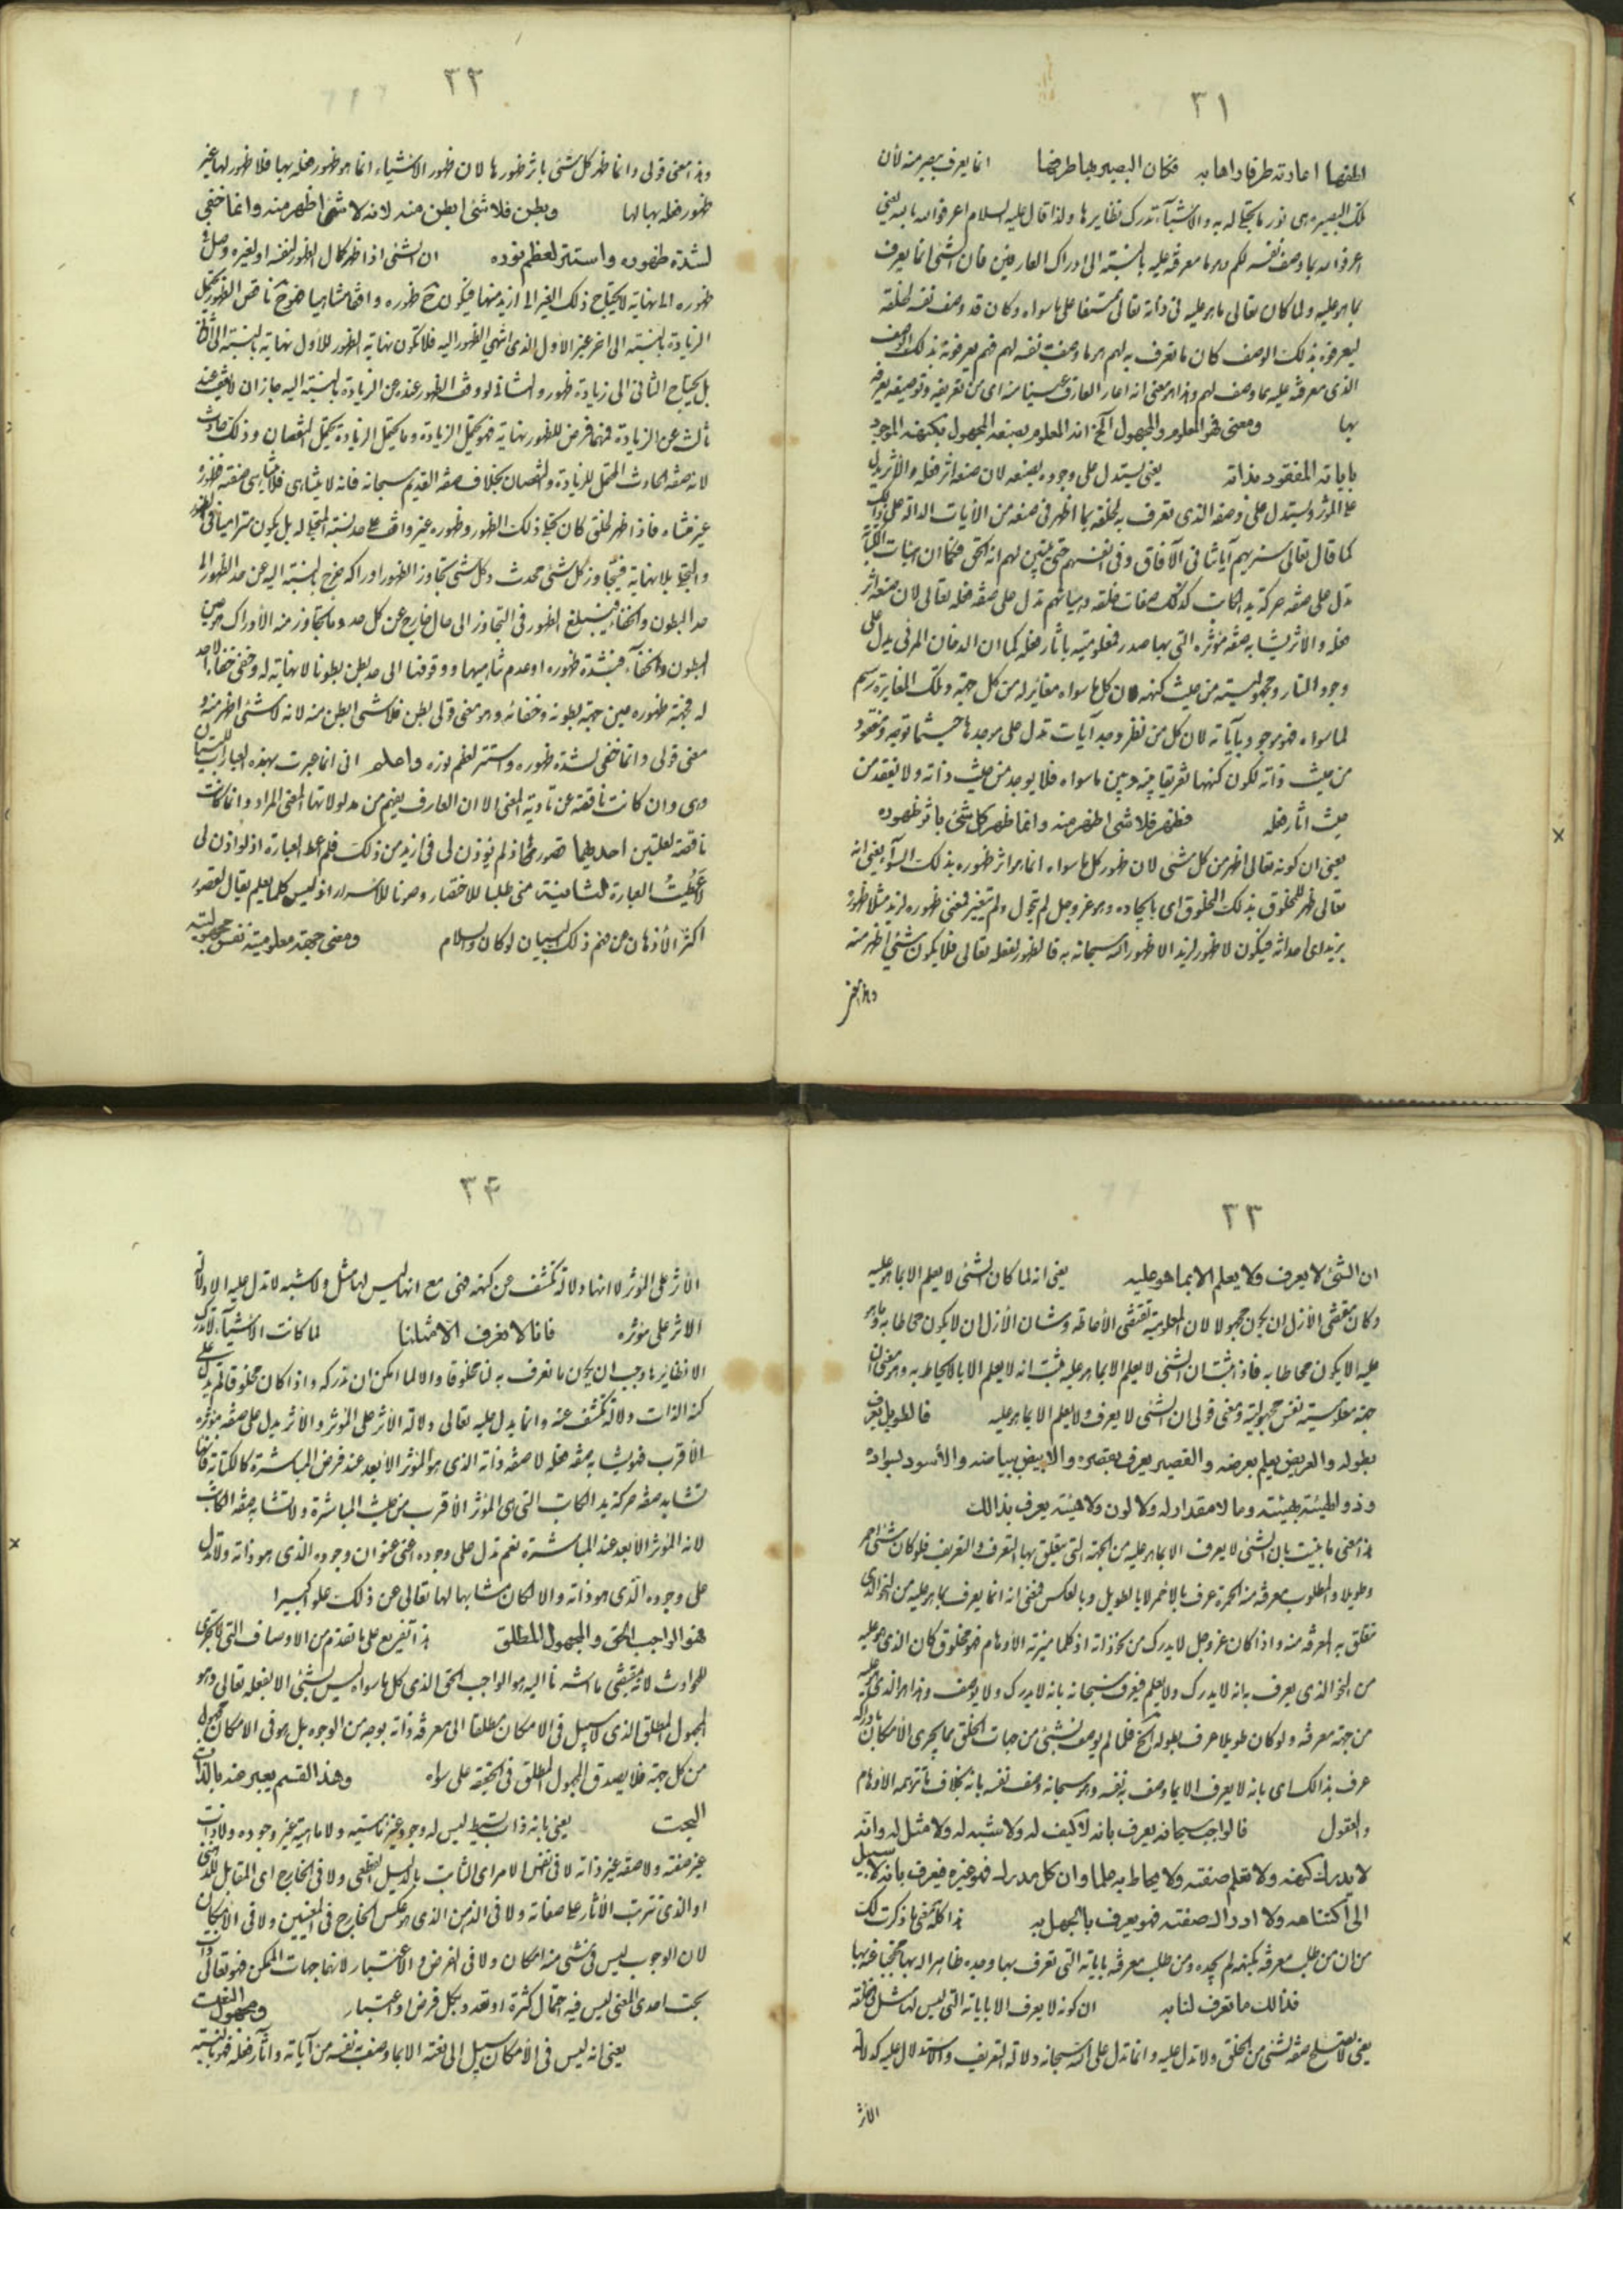 ٣١
اعارته طرفا رآها به فكان البصير بها طرفها انما يعرف ببصر منه لأن
تلك البصيرة هى نور ما تجلى له به والاشياء تدرك نظايرها ولذا قال عليه السلام اعرفوا الله بالله يعنى
اعرفوا الله بما وصف نفسه لكم وهو ما معرفته عليه بالنسبة الى ادراك العارفين فان الشئ انما يعرف
بما هو عليه ولما كان تعالى ما هو عليه فى ذاته تعالى على ما سواه وكان قد وصف نفسه لخلقه
ليعرفوه بذلك الوصف كان ما تعرف به لهم هو ما وصف نفسه لهم فهم يعرفونه بذلك الوصف
الذى معرفته عليه بما وصف لهم وهذا هو معنى انه اعار العارف عينا منه اى من تعريفه وتوصيفه يعرفه
بها ومعنى فهو المعلوم والمجهول الخ انه المعلوم بصنعه المجهول بكنهه الموجود
باياته المفقود بذاته يعنى يستدل على وجوده بصنعه لان صنعه اثر فعله والأثر يدل
على المؤثر ويستدل على وصفه الذى تعرف به لخلقه بما اظهر فى صنعه من الآيات الدالة على ذلك
كما قال تعالى سنريهم آياتنا فى الآفاق وفى انفسهم حتى يتبين لهم انه الحق فكما ان هيئات الكتابة
تدل على صفة حركة يد الكاتب كذلك صفات خلقه وهيئاتهم تدل على صفة فعله تعالى لان صنعه اثر
فعله والأثر يشابه صفة مؤثره التى بها صدر فمعلوميته بآثار فعله كما ان الدخان المرئى يدل على
وجود النار ومجهوليته من حيث كنهه لان كل ما سواه مغاير له من كل جهة وتلك المغايرة رسم
لما سواه فهو موجود بآياته لان كل من نظر وجد آيات تدل على موجدها حيثما توجه ومفقود
من حيث ذاته لكون كنهها تفريقا بينه وبين ما سواه فلا يوجد من حيث ذاته ولا يفقد من
حيث آثار فعله فظهر فلا شئ اظهر منه وانما ظهر كل شئ باثر ظهوره
يعنى ان كونه تعالى اظهر من كل شئ لان ظهور كل ما سواه انما هو اثر ظهوره بذلك السوآء يعنى انه
تعالى ظهر للمخلوق بذلك المخلوق اى بايجاده وهو عز وجل لم يتحول ولم يتغير فمعنى ظهوره لزيد مثلا ظهوره
بزيد اى احداثه فيكون لا ظهور لزيد الا ظهور الله سبحانه به فالظهور لفعله تعالى فلا يكون شئ اظهر منه
٣٢
وهذا معنى قولى وانما ظهر كل شئ باثر ظهوره لان ظهور الاشياء انما هو ظهور فعله بها فلا ظهور لها غير
ظهور فعله بها لها وبطن فلا شئ ابطن منه لانه لا شئ اظهر منه وانما خفى
لشدة ظهوره واستتر لعظم نوره ان الشئ اذا ظهر كمال الظهور لنفسه او لغيره وصل
ظهوره الى نهاية لا يحتاج ذلك الغير الى ازيد منها فيكون ظهوره واقفا متناهيا فهو ناقص الظهور يحتمل
الزيادة بالنسبة الى اخر غير الاول الذى انتهى الظهور اليه فلا تكون نهاية الظهور للأول نهاية بالنسبة الى الثانى
بل يحتاج الثانى الى زيادة ظهور والثانى لو وقف الظهور عنده عن الزيادة بالنسبة اليه جاز ان لا يقف عند
ثالث عن الزيادة فمهما فرض للظهور نهاية فهو يحتمل الزيادة وما يحتمل الزيادة يحتمل النقصان وذلك حادث
لانه صفة الحادث المحتمل للزيادة والنقصان بخلاف صفة القديم سبحانه فانه لا يتناهى فلا تتناهى صفته فظهوره
غير متناه فاذا ظهر لخلق كان تجلى ذلك الظهور وظهوره غير واقف على حد نسبة المتجلى له بل يكون متراميا فى الظهور
والتجلى بلا نهاية فيتجاوز كل شئ محدث وكل شئ تجاوز الظهور ادراكه خرج بالنسبة اليه عن حد الظهور الى
حد البطون والخفاء فيبلغ الظهور فى التجاوز الى حال خارج عن كل حد وما يتجاوز منه الأدراك هو عين
البطون والخفآء فبشدة ظهوره او عدم تناهيها ووقوفها الى حد بطن بطونا لا نهاية له وخفى خفاءً لا حد
له فجهة ظهوره عين جهة بطونه وخفائه وهو معنى قولى بطن فلا شئ ابطن منه لانه لا شئ اظهر منه و
معنى قولى وانما خفى لشدة ظهوره واستتر لعظم نوره واعلم انى انما عبرت بهذه العبارات للبيان
وهى وان كانت ناقصة عن تأدية المعنى الا ان العارف يفهم من مدلولاتها المعنى المراد وانما كانت
ناقصة لعلتين احديهما قصورى اذ لم يؤذن لى فى ازيد من ذلك فلم اعط العبارة اذ لو اذن لى
لأُعطيتُ العبارة الثانية منى طلبا للاختصار وصونا للأسرار اذ ليس كلما يعلم يقال لقصور
اكثر الأذهان عن فهم ذلك البيان لو كان والسلام ومعنى جهة معلوميته نفس مجهوليته
٣٣
ان الشئ لا يعرف ولا يعلم الا بما هو عليه يعنى انه لما كان الشئ لا يعلم الا بما هو عليه
وكان مقتضى الأزل ان يكون مجهولا لان المعلومية تقتضى الأحاطة وشان الأزل ان لا يكون محاطا به وما هو
عليه الا يكون محاطا به فاذا ثبت ان الشئ لا يعلم الا بما هو عليه ثبت انه لا يعلم الا بالا يحاط به وهو معنى ان
جهة معلوميته نفس مجهوليته ومعنى قولى ان الشئ لا يعرف ولا يعلم الا بما هو عليه فالطويل يعرف
بطوله والعريض يعلم بعرضه والقصير يعرف بقصره والابيض ببياضه والأسود بسواده
وذو الهيئة بهيئته وما لا مقدار له ولا لون ولا هيئة يعرف بذالك
هذا معنى ما بينت بان الشئ لا يعرف الا بما هو عليه من الجهة التى يتعلق بها التعرف والتعريف فلو كان شئ احمر
وطويلا والمطلوب معرفته منه الحمرة عرف بالاحمر لا بالطويل وبالعكس فمعنى انه انما يعرف بما هو عليه من النحو الذى
تتعلق به المعرفة منه واذا كان عز وجل لا يدرك من نحو ذاته اذ كلما ميزته الأوهام فهو مخلوق كان الذى هو عليه
من النحو الذى يعرف به انه لا يدرك ولا يعلم فيعرف سبحانه بانه لا يدرك ولا يوصف وهذا هو الذى هو عليه
من جهة معرفته ولو كان طويلا عرف بطوله الخ فلما لم يوصف بشئ من جهات الخلق مما يجرى الأمكان بادراكه
عرف بذالك اى بانه لا يعرف الا بما وصف به نفسه وهو سبحانه وصف نفسه بانه بخلاف ما تتوهمه الأوهام
والعقول فالواجب سبحانه يعرف بانه لا كيف له ولا شبه له ولا مثل له وانه
لا يدرك كنهه ولا تعلم صفته ولا يحاط به علما وان كل مدرك فهو غيره فيعرف بانه لا سبيل
الى اكتناهه ولا ادراك صفته فهو يعرف بالجهل به هذا كله بمعنى ما ذكرت لك
من ان من طلب معرفته بكنهه لم يجده ومن طلب معرفته باياته التى تعرف بها وجده ظاهرا له بها محتجبا عنه بها
فلنا لك ما تعرف لنا به ان كونه لا يعرف الا باياته التى ليس لها مثل فى خلقه
يعنى لا تصلح صفة لشئ من الخلق ولا تدل عليه وانما تدل على الله سبحانه دلالة التعريف والاستدلال عليه كدلالة
الأثر
٣٤
الأثر على المؤثر لا انها دلالة تكشف عن كنهه فهى مع انها ليس لها مثل ولا شبه لا تدل عليه الا دلالة
الأثر على مؤثره فانا لا نعرف الا مثلنا لما كانت الاشيآء لا تدرك
الا نظايرها وجب ان يكون ما تعرف به لنا مخلوقا والا لما امكن ان ندركه واذا كان مخلوقا لم يدل على
كنه الذات دلالة تكشف عنه وانما يدل عليه تعالى دلالة الأثر على المؤثر والأثر يدل على صفة مؤثره
الأقرب فهو يشابه صفة فعله لا صفة ذاته الذى هو المؤثر الأبعد عند فرض المباشرة كالكتابة فانها
تشابه صفة حركة يد الكاتب التى هى المؤثر الأقرب من حيث المباشرة ولا تشابه صفة الكاتب
لانه المؤثر الأبعد عند المباشرة نعم تدل على وجوده اعنى عنوان وجوده الذى هو ذاته ولا تدل
على وجوده الذى هو ذاته والا لكان مشابها لها تعالى عن ذلك علوا كبيرا
فهو الواجب الحق والمجهول المطلق هذا تفريع على ما تقدم من الاوصاف التى لا تجرى
للحوادث لانه مقتضى ما اشرنا اليه هو الواجب الحق الذى كل ما سواه ليس بشئ الا بفعله تعالى وهو
المجهول المطلق الذى لا سبيل فى الامكان مطلقا الى معرفة ذاته بوجه من الوجوه بل هو فى الامكان مجهول
من كل جهة فلا يصدق المجهول المطلق فى الحقيقة على سواه وهذا القسم يعبر عنه بالذات
البحت يعنى بانه ذات بسيط ليس له وجود غير ماهيته ولا ماهية غير وجوده ولا ذات
غير صفته ولا صفة غير ذاته لا فى نفس الامر اى الثابت بالدليل القطعى ولا فى الخارج اى المقابل للذهنى
او الذى تترتب الأثار على صفاته ولا فى الذهن الذى هو عكس الخارج فى المعنيين ولا فى الامكان
لان الوجوب ليس فى شئ منه امكان ولا فى الفرض والاعتبار لانهما جهات الممكن فهو تعالى ذات
بحت احدى المعنى ليس فيه احتمال كثرة او تعدد بكل فرض واعتبار ومجهول النعت
يعنى انه ليس فى الأمكان سبيل الى نعته الا بما وصف به نفسه من آياته وآثار فعله فهو بالنسبة